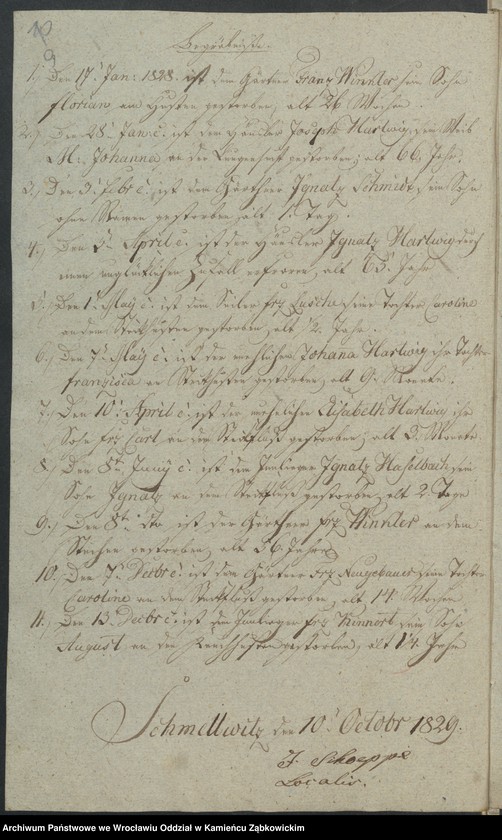 Begräbnisse.
1.) Den 17t Jan: 1828. ist dem Gärtner Franz Winkler sein Sohn
Florian am Husten gestorben, alt 26 Wochen.
2.) Den 28t Jan: c. ist dem Häusler Joseph Hartwig sein Weib
M: Johanna an der gestorben, alt 66 Jahr.
3.) Den 3t Febr c. ist dem Gärtner Ignatz Schmidt sein Sohn
ohne Namen gestorben, alt 1. Tag.
4.) Den April c. ist der Häusler Ignatz Hartwig durch
einen unglücklichen Zufall erfroren, alt 63 Jahr
5.) Den 1t May c. ist dem Seiler frz seine Tochter Caroline
an dem gestorben, alt ½ Jahr.
6.) Den 7t May c. ist der Johana Hartwig ihr Tochter
franzisca an gestorben, alt 9. Monate.
7.) Den 10t April c. ist der Elisabeth Hartwig ihr
Sohn frz Carl an dem Steckfluß gestorben, alt 3. Monate
8.) Den 8t Juny c. ist dem Innlieger Ignatz Haselbach sein
Sohn Ignatz an dem Steckfluß gestorben, alt 2. Tage
9.) Den 8t dto ist der Gärtner frz Winkler an dem
gestorben, alt 56 Jahre
10. Den 7t Decbr c. ist dem Gärtner frz Neugebauer seine Tochter
Caroline an dem Steckfluß gestorben, alt 14 Wochen
11. Den 13 Decbr c. ist dem Innlieger frz sein Sohn
August an der gestorben, alt 14 Jahr
Schmellwitz den 10t Octobr 1829.
J. Schoeppe
Localis.
Archiwum Państwowe we Wrocławiu Oddział w Kamieńcu Ząbkowickim